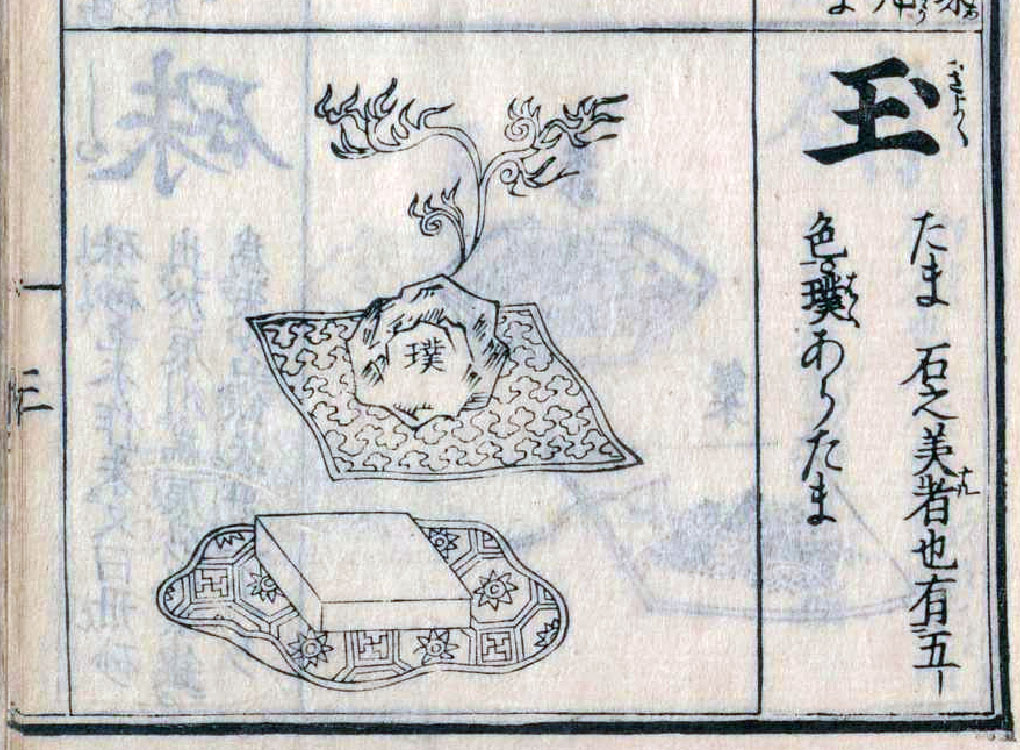 玉 ぎよく
たま 石之美者也有五
色璞あらたま
璞